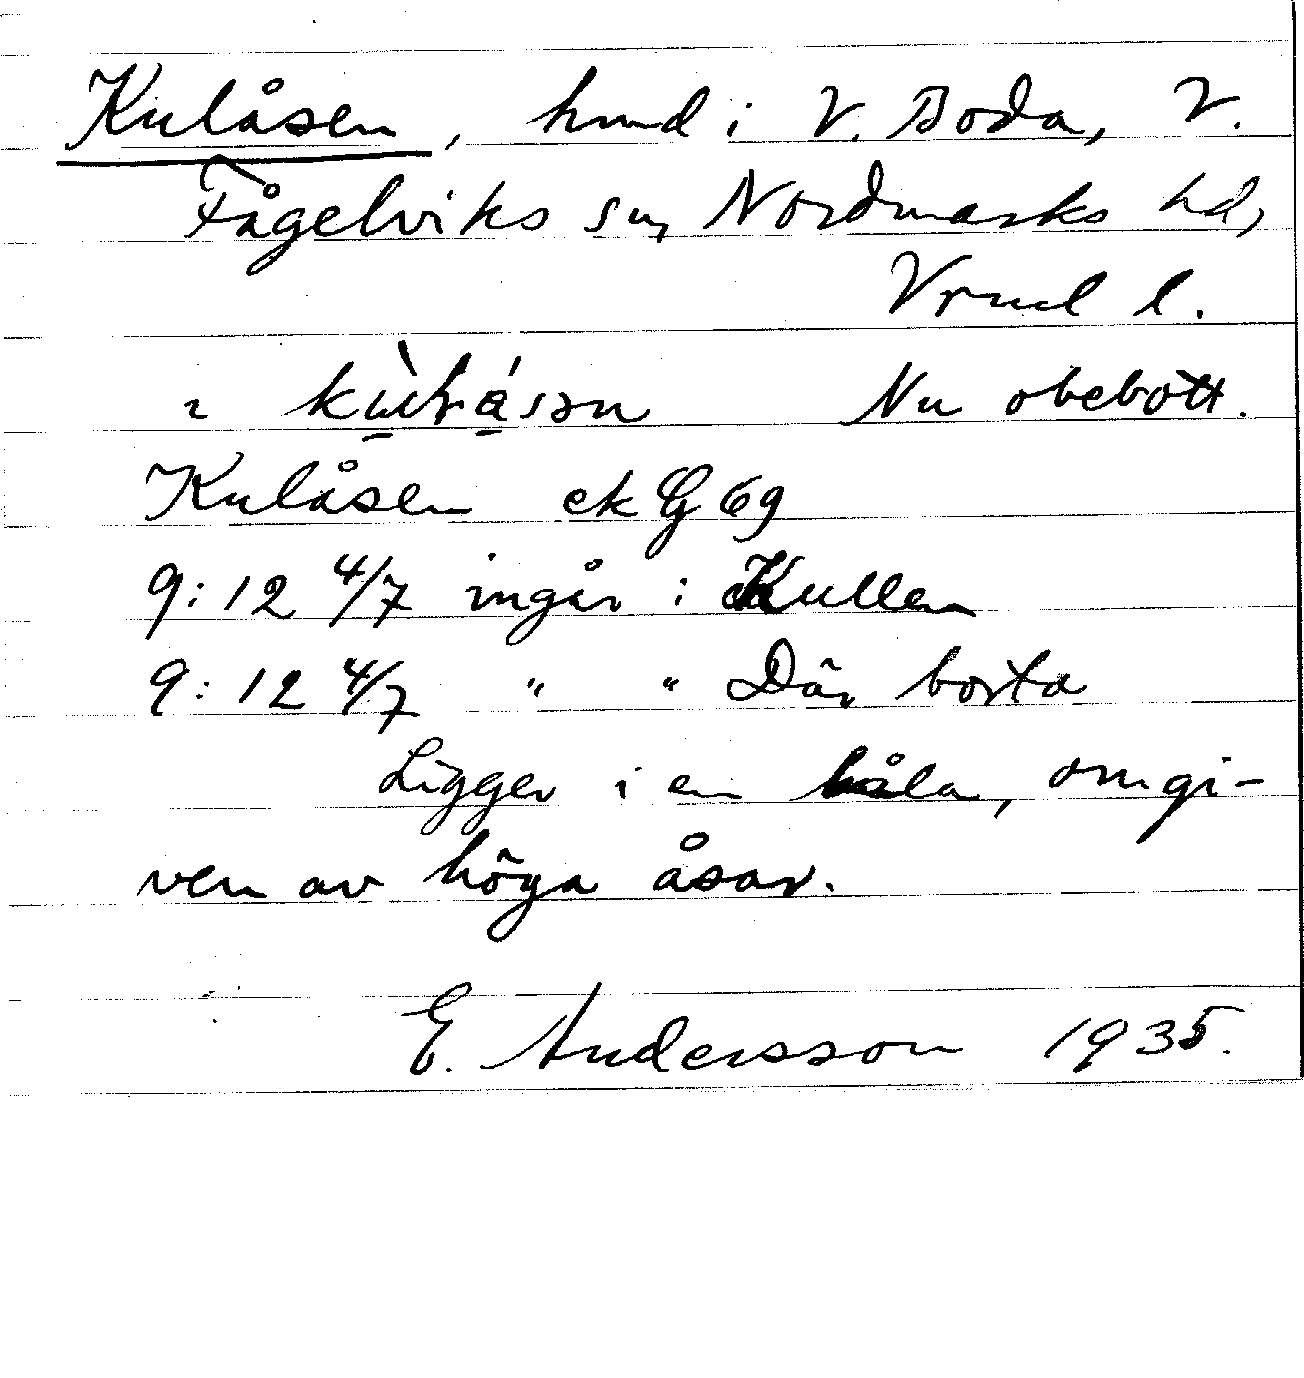 Kulåsen, hmd i V. Boda, V.
Fågelviks sn, Nordmarks hd,
Vrml l.
Nu obebott.
Kulåsen ek G 69
9:12 4/7 ingår i Kullen
9:12 4/7 " " Där borta
Ligger i en håla, omgi-
ven av höga åsar.
E. Andersson 1935.